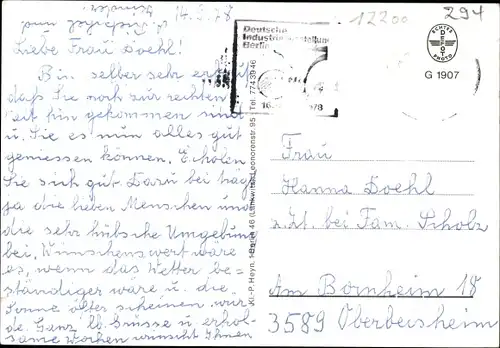 14.5.78
12200
294
Liebe Frau Doehl!
Bin selber sehr
daß Sie noch zur rechten
Zeit hin gekommen sind
u. Sie es nun alles gut
geniessen können. Erholen
Sie sich gut. Dazu bei
ja die lieben Menschen und
die sehr hübsche Umgebung
bei. Wünschenswert wäre
es, wenn das Wetter be-
ständiger wäre u. die
Sonne öfter scheinen
de. Ganz lb. Grüsse u. erhol-
same Wochen wünscht Ihnen
Deutsche
Industrieausstellung
Berlin
ECHTES
DEFOT
PHOTO
G 1907
Kl.-P. Heyn, 1 Berlin 46 (Lankw.), Leonorenstr. 95 Tel. 774 39 46
Frau
Hanna Doehl
z.Zt. bei Fam. Scholz
Am Bornheim 18
3589 Oberbeisheim